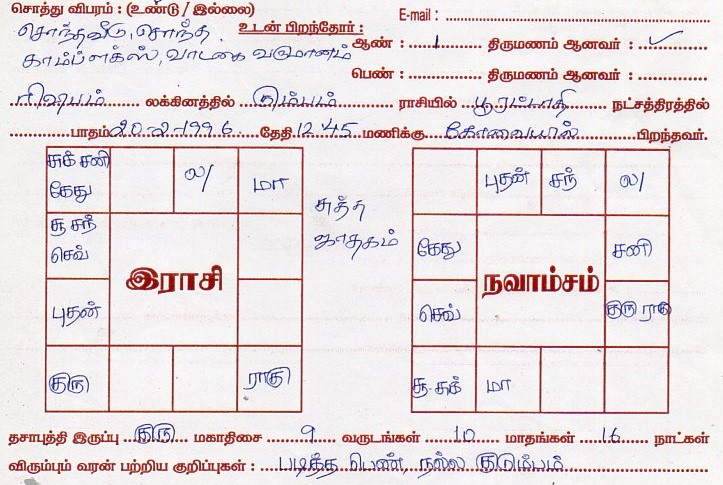 சொத்து விபரம் : (உண்டு / இல்லை)
E-mail :
சொந்தவீடு, சொந்த
உடன் பிறந்தோர் :
காம்ப்ளக்ஸ், வாடகை வருமானம்
ஆண் : 1 திருமணம் ஆனவர் : ✓
பெண் : திருமணம் ஆனவர் :
ரிஷபம் லக்கினத்தில் கும்பம் ராசியில் பூரட்டாதி நட்சத்திரத்தில்
பாதம் 20-2-1996 தேதி 12.45 மணிக்கு கோவையில் பிறந்தவர்.
சுக் சனி கேது ல/ மா
சூ சந் செவ்
இராசி
புதன்
குரு ராகு
சுத்த
ஜாதகம்
புதன் சந் ல/
கேது சனி
நவாம்சம்
செவ் குரு ராகு
சூ-சுக் மா
தசாபுத்தி இருப்பு குரு மகாதிசை 9 வருடங்கள் 10 மாதங்கள் 16 நாட்கள்
விரும்பும் வரன் பற்றிய குறிப்புகள் : படித்த பெண், நல்ல குடும்பம்